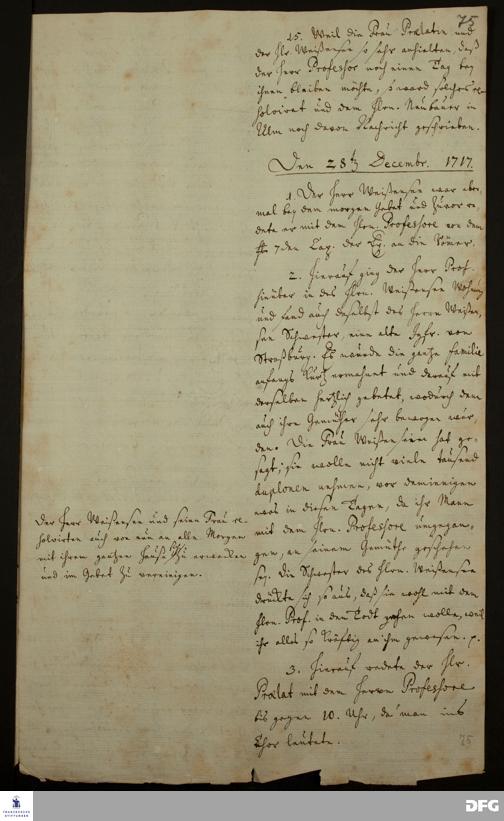 75
15. Weil die Frau Prælatin und
der Hr. Weißensee so sehr anhielten, daß
der Herr Professor noch einen Tag bey
ihnen bleiben möchte, so ward solches re-
solviret und dem Hrn. Neubauer in
Ulm noch davon Nachricht geschrieben.
Den 28 Decembr. 1717.
1. Der Herr Weißensee war aber-
mal bey dem morgen Gebet und zuvor re-
dete er mit dem Hrn. Professore von dem
7den Cap. der Ep. an die Römer.
2. Hierauf ging der Herr Prof.
hinüber in des Hrn. Weißensee Wohnung
und fand auch daselbst des Herrn Weißen-
see Schwester, eine alte Jgfr. von
Straßburg. Es wurde die gantze Familie
anfangs kurtz ermahnet und darauf mit
derselben hertzlich gebetet, wodurch dann
auch ihre Gemüther sehr bewogen wur-
den. Die Frau Weißenseein hat ge-
sagt; sie wolle nicht viele tausend
duplonen nehmen, vor demjenigen
was in diesen Tagen, da ihr Mann
mit dem Hrn. Professore umgegan-
gen, an seinem Gemüthe geschehen
sey. Die Schwester des Hrn. Weißensee
drückte sich so aus, daß sie wohl mit dem
Hrn. Prof. in den Todt gehen wolle, weil
ihr alles so kräftig an ihm gewesen. p.
Der Herr Weißensee und seine Frau re-
solvirten auch von nun an alle Morgen
mit ihrem gantzen Hause sich zu erwecken
und im Gebet zu vereinigen.
3. Hierauf redete der Hr.
Prælat mit dem Herrn Professore
bis gegen 10. Uhr, da man ins
Chor leutete.
75
FRANCKESCHE
STIFTUNGEN
DFG